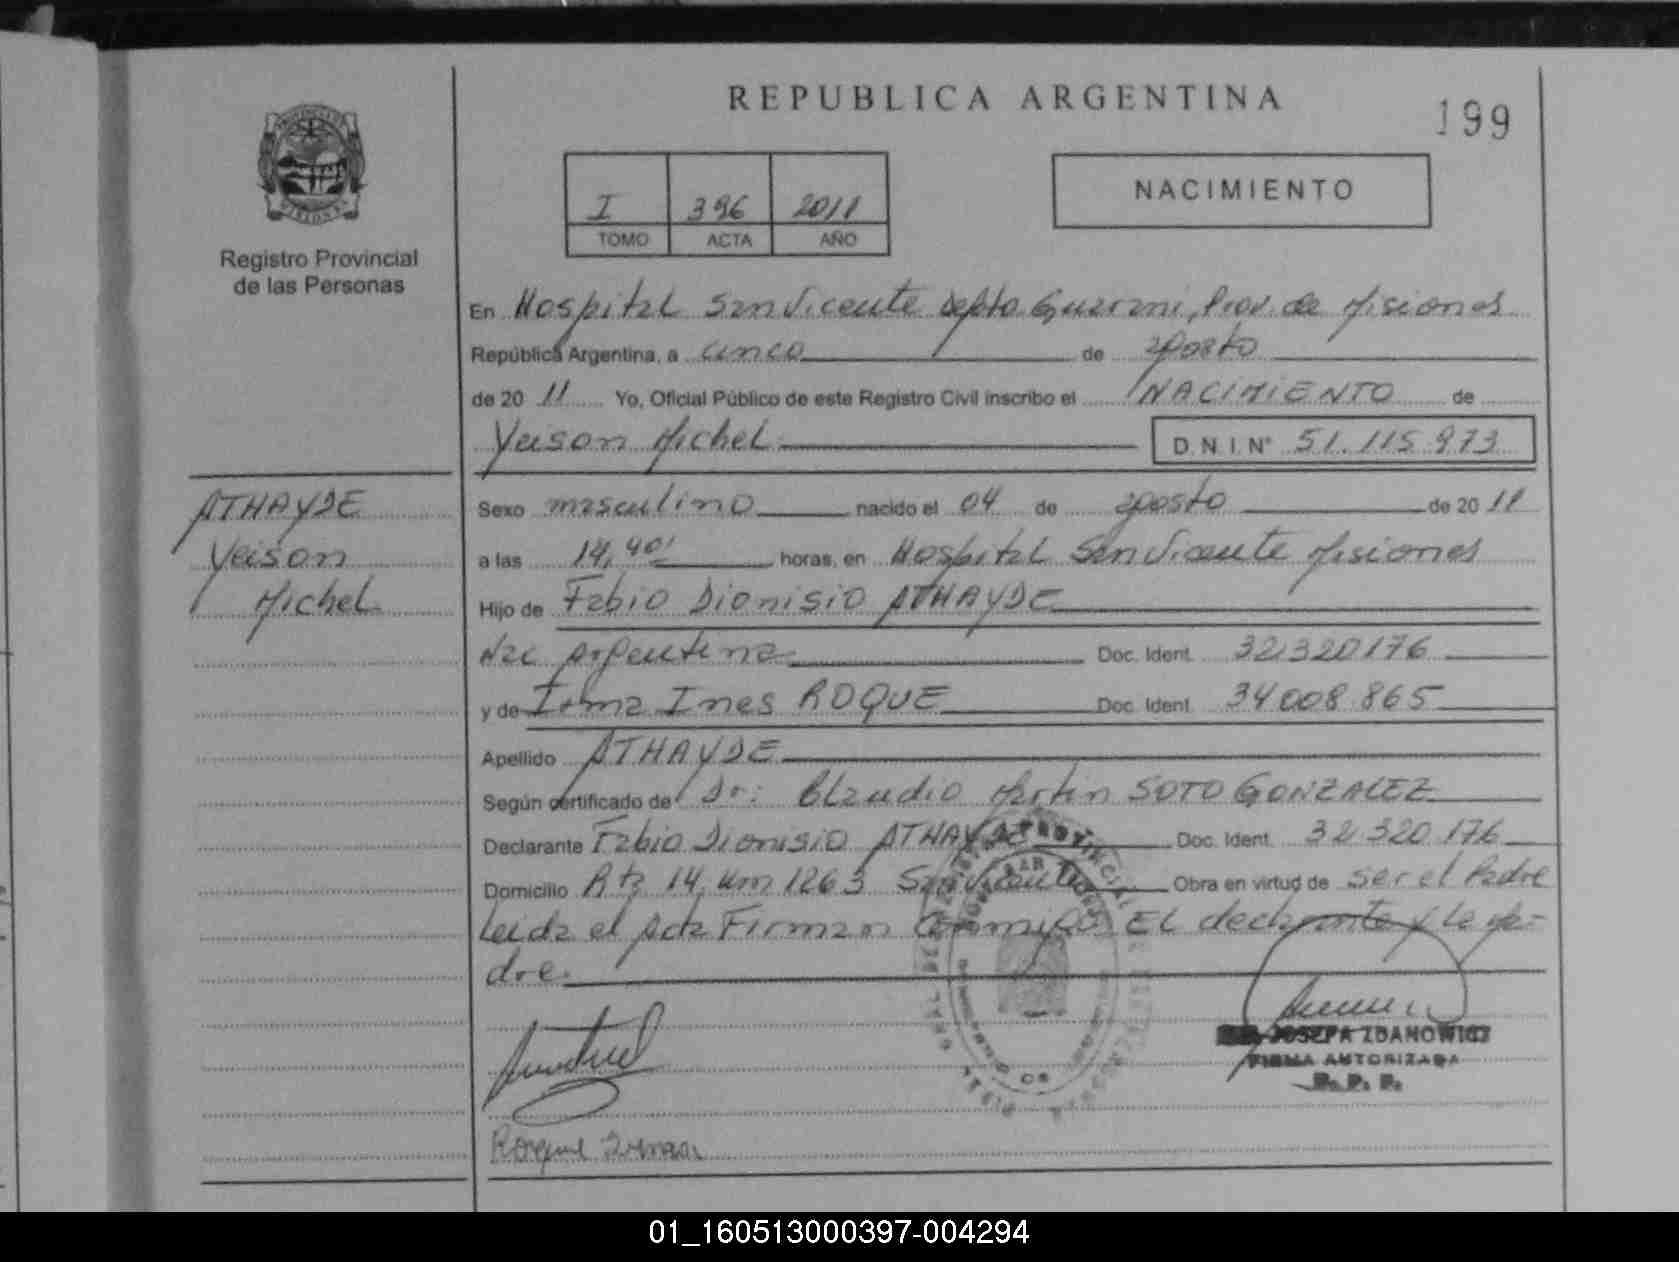 REPUBLICA ARGENTINA
199
Registro Provincial
de las Personas
I 396 2011
TOMO ACTA AÑO
NACIMIENTO
En Hospital San Vicente Depto. Guarani, Prov. de Misiones
República Argentina, a cinco de agosto
de 20 11 Yo, Oficial Público de este Registro Civil inscribo el NACIMIENTO de
Yeison Michel D.N.I.N° 51.115.973
ATHAYDE
Yeison
Michel
Sexo masculino nacido el 04 de agosto de 20 11
a las 14,40' horas, en Hospital San Vicente Misiones
Hijo de Fabio Dionisio ATHAYDE
Nac Argentina Doc. Ident. 32.320.176
y de Irma Ines ROQUE Doc. Ident. 34.008.865
Apellido ATHAYDE
Según certificado de Dr: Claudio Martin SOTO GONZALEZ
Declarante Fabio Dionisio ATHAYDE Doc. Ident. 32.320.176
Domicilio Rta 14, Km 1263 San Vicente Obra en virtud de ser el Padre
Leida el Acta Firman Conmigo El declarante y la Ma-
dre.
JOSEFA ZDANOWICZ
FIRMA AUTORIZADA
R. P. P.
Roque Irma
01_160513000397-004294